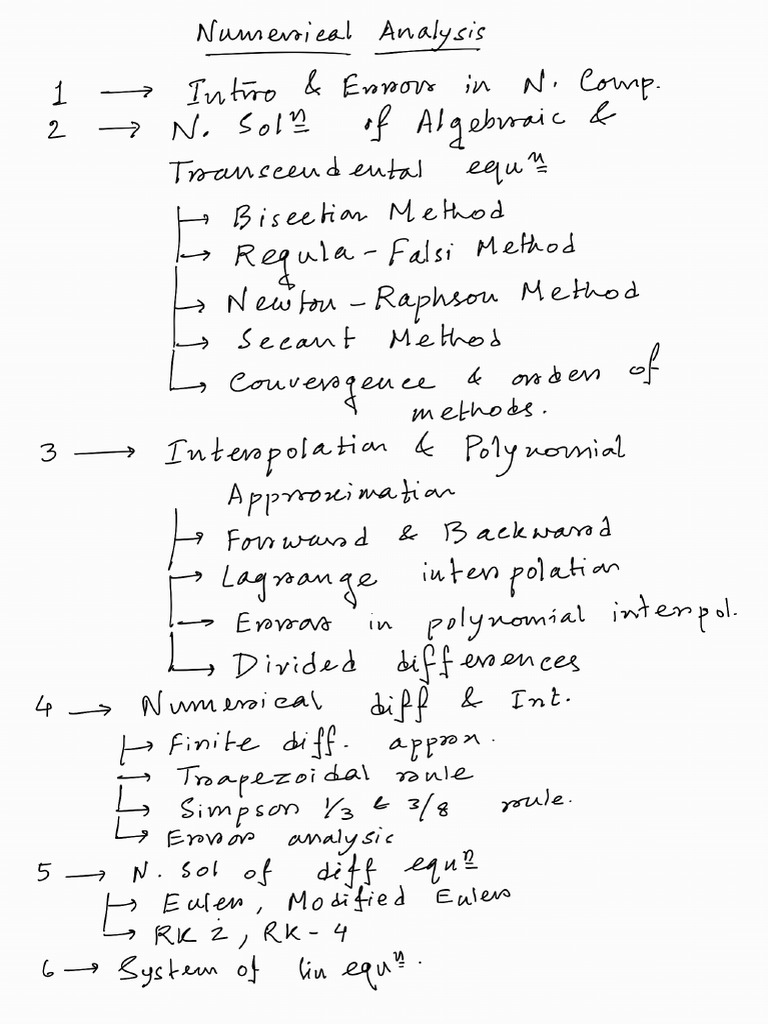 Numerical Analysis
1 → Intro & Error in N. Comp.
2 → N. Solⁿ of Algebraic &
Transcendental equⁿ
→ Bisection Method
→ Regula-Falsi Method
→ Newton-Raphson Method
→ Secant Method
→ Convergence & order of
methods.
3 → Interpolation & Polynomial
Approximation
→ Forward & Backward
→ Lagrange interpolation
→ Error in polynomial interpol.
→ Divided differences
4 → Numerical diff & Int.
→ Finite diff. approx.
→ Trapezoidal rule
→ Simpson 1/3 & 3/8 rule.
→ Error analysis
5 → N. Sol of diff equⁿ
→ Euler, Modified Euler
→ RK 2, RK-4
6 → System of lin equⁿ.